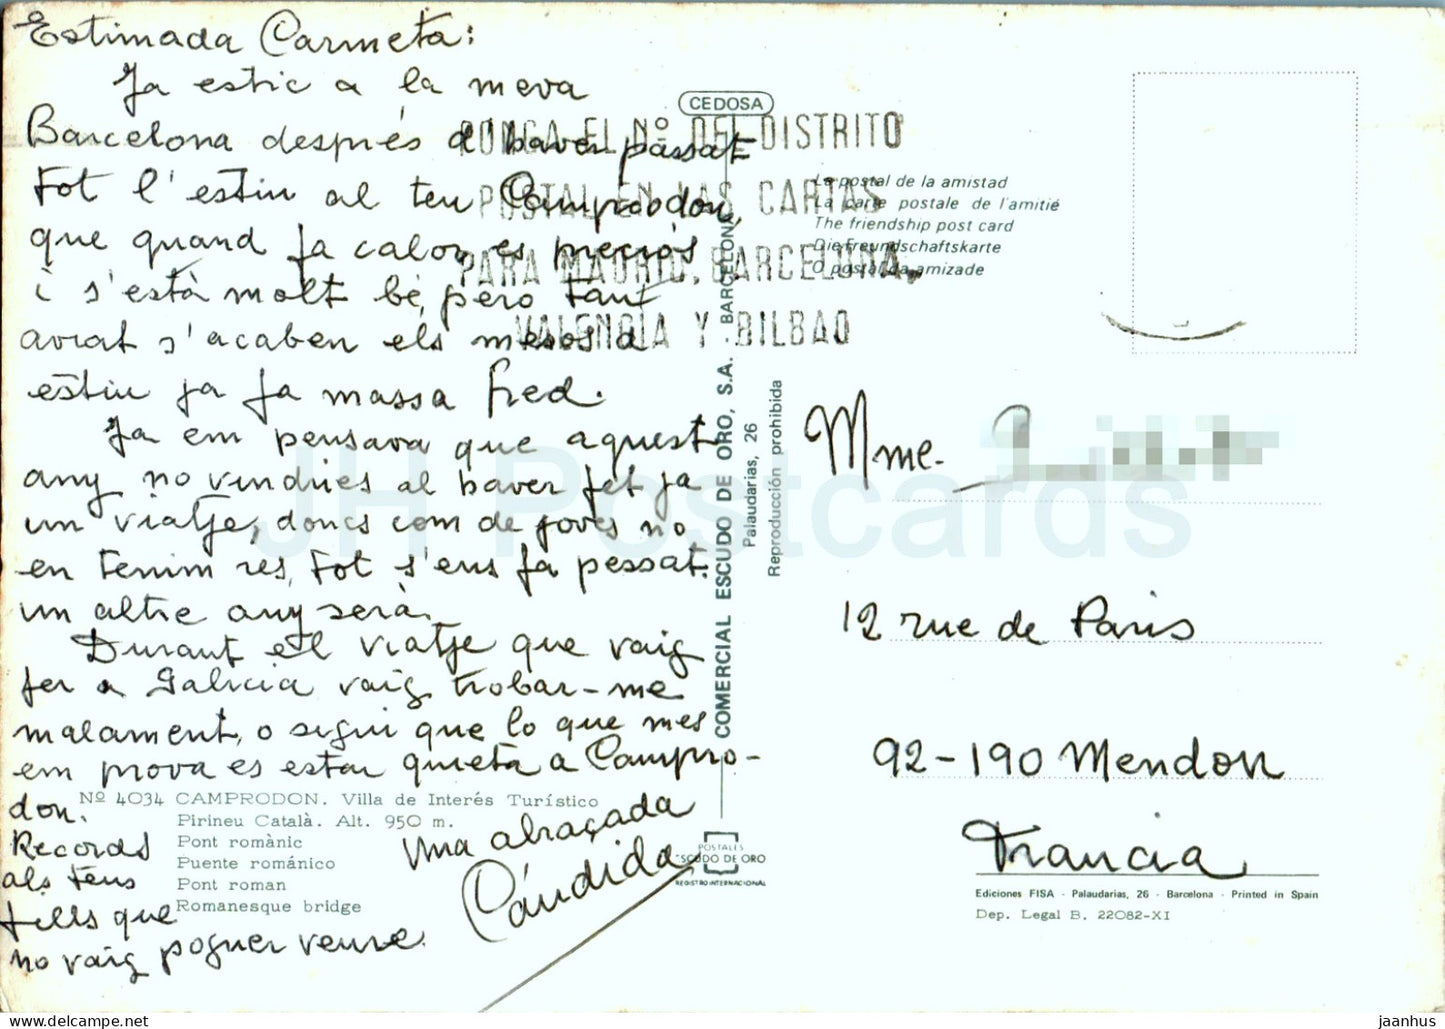 Estimada Carmeta:
Ja estic a la meva
Barcelona després d'haver passat
tot l'estiu al teu Camprodon,
que quand fa calor es preciós
i s'està molt bé, pero tant
aviat s'acaben els mesos d
estiu ja fa massa fred.
Ja em pensava que aquest
any no vindries al haver fet ja
un viatje, doncs com de joves no
en tenim res, tot s'ens fa pessat.
un altre any serà.
Durant el viatje que vaig
fer a Galicia vaig trobar-me
malament, o sigui que lo que mes
em prova es estar quieta a Campro-
don.
Records
als teus
fills que
no vaig poguer veure.
Una abraçada
Cándida
Nº 4034 CAMPRODON. Villa de Interés Turístico
Pirineu Català. Alt. 950 m.
Pont romànic
Puente románico
Pont roman
Romanesque bridge
CEDOSA
PONGA EL Nº DEL DISTRITO
POSTAL EN LAS CARTAS
PARA MADRID, BARCELONA,
VALENCIA Y BILBAO
La postal de la amistad
La carte postale de l'amitié
The friendship post card
Die Freundschaftskarte
O postal da amizade
COMERCIAL ESCUDO DE ORO, S.A. BARCELONA
Palaudarias, 26
Reproducción prohibida
POSTALES
ESCUDO DE ORO
REGISTRO INTERNACIONAL
Mme.
12 rue de Paris
92-190 Mendon
Francia
Ediciones FISA - Palaudarias, 26 - Barcelona - Printed in Spain
Dep. Legal B. 22082-XI
JH Postcards
https://www.delcampe.net
jaanhus